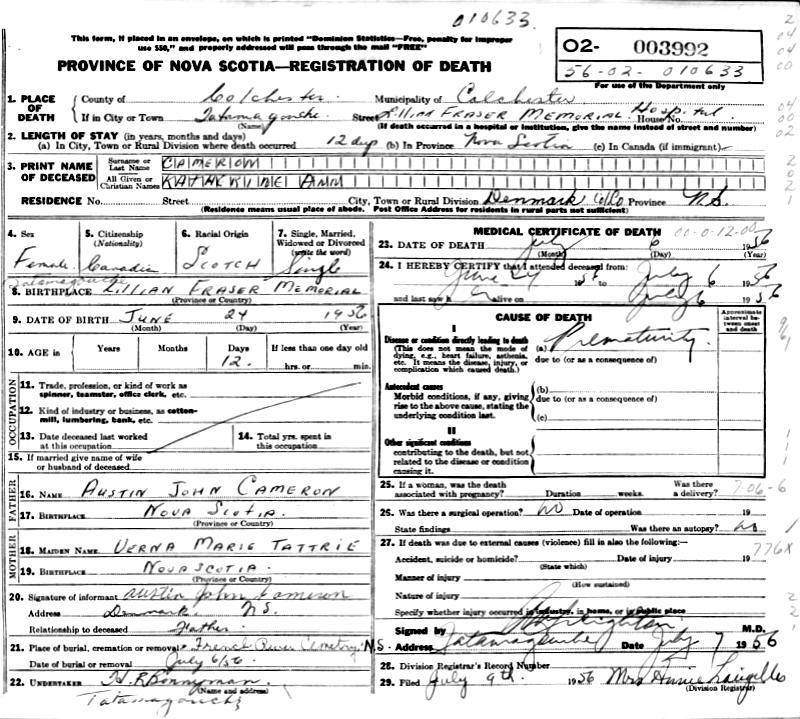 010633
This form, if placed in an envelope, on which is printed "Dominion Statistics—Free, penalty for improper
use $50," and properly addressed will pass through the mail "FREE"
O2- 003992
56-02-010633
For use of the Department only
PROVINCE OF NOVA SCOTIA—REGISTRATION OF DEATH
1. PLACE OF DEATH
County of Colchester Municipality of Colchester
If in City or Town Tatamagouche Street Lillian FRASER MEMORIAL Hospital House No.
(Name) (If death occurred in a hospital or institution, give the name instead of street and number)
2. LENGTH OF STAY (in years, months and days)
(a) In City, Town or Rural Division where death occurred 12 days (b) In Province Nova Scotia (c) In Canada (if immigrant)
3. PRINT NAME OF DECEASED
Surname or Last Name CAMERON
All Given or Christian Names KATHERINE ANN
RESIDENCE No. Street City, Town or Rural Division Denmark Col Co Province N.S.
(Residence means usual place of abode. Post Office Address for residents in rural parts not sufficient)
4. Sex
Female
5. Citizenship
(Nationality)
Canadian
6. Racial Origin
SCOTCH
7. Single, Married, Widowed or Divorced
(write the word)
Single
Tatamagouche
8. BIRTHPLACE LILLIAN FRASER MEMORIAL
(Province or Country)
9. DATE OF BIRTH JUNE 24 1956
(Month) (Day) (Year)
10. AGE in Years Months Days If less than one day old
12. hrs. or min.
OCCUPATION
11. Trade, profession, or kind of work as
spinner, teamster, office clerk, etc.
12. Kind of industry or business, as cotton-
mill, lumbering, bank, etc.
13. Date deceased last worked
at this occupation
14. Total yrs. spent in
this occupation
15. If married give name of wife
or husband of deceased
FATHER
16. NAME AUSTIN JOHN CAMERON
17. BIRTHPLACE NOVA SCOTIA.
(Province or Country)
MOTHER
18. MAIDEN NAME VERNA MARIE TATTRIE
19. BIRTHPLACE NOVA SCOTIA.
(Province or Country)
20. Signature of informant Austin John Cameron
Address Denmark N.S.
Relationship to deceased Father
21. Place of burial, cremation or removal French River Cemetery N.S.
Date of burial or removal July 6/56
22. UNDERTAKER
(Name and address)
Tatamagouche
MEDICAL CERTIFICATE OF DEATH
00-0-12-00
23. DATE OF DEATH July 6 1956
(Month) (Day) (Year)
24. I HEREBY CERTIFY that I attended deceased from:
June 24 1956 to July 6 1956
and last saw h er alive on July 6 1956
CAUSE OF DEATH
Approximate interval between onset and death
I
Disease or condition directly leading to death
(This does not mean the mode of
dying, e.g., heart failure, asthenia,
etc. It means the disease, injury, or
complication which caused death.)
(a) Prematurity.
due to (or as a consequence of)
Antecedent causes
Morbid conditions, if any, giving
rise to the above cause, stating the
underlying condition last.
(b)
due to (or as a consequence of)
(c)
II
Other significant conditions
contributing to the death, but not
related to the disease or condition
causing it.
25. If a woman, was the death
associated with pregnancy? Duration weeks. Was there
a delivery?
26. Was there a surgical operation? no Date of operation 19
State findings Was there an autopsy? no
27. If death was due to external causes (violence) fill in also the following:—
776X
Accident, suicide or homicide? Date of injury 19
(State which)
Manner of injury
(How sustained)
Nature of injury
Specify whether injury occurred in industry, in home, or in public place
Signed by M.D.
Address Tatamagouche Date July 7 1956
28. Division Registrar's Record Number
29. Filed July 9th. 1956 Mrs Annie Langille
(Division Registrar)